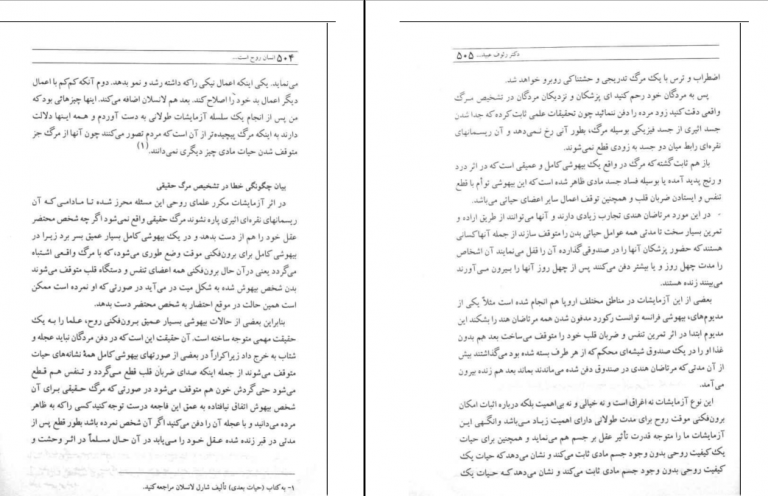 ۵۰۴ انسان روح است...
می‌نماید. یکی اینکه اعمال نیکی راکه داشته رشد و نمو بدهد. دوم آنکه کم‌کم با اعمال
دیگر اعمال بد خود را اصلاح کند. بعد هم لانسلان اضافه می‌کند. اینها چیزهائی بود که
من پس از انجام یک سلسله آزمایشات طولانی به دست آوردم و همه اینها دلالت
دارند به اینکه مرگ پیچیده‌تر از آن است که مردم تصور می‌کنند چون آنها از مرگ جز
متوقف شدن حیات مادی چیز دیگری نمی‌دانند.(۱)
بیان چگونگی خطا در تشخیص مرگ حقیقی
در اثر آزمایشات مکرر علمای روحی این مسئله محرز شده تا مادامی که آن
ریسمانهای نقره‌ای اثیری پاره نشوند مرگ حقیقی واقع نمی‌شود اگر چه شخص محتضر
عقل خود را هم از دست بدهد و در یک بیهوشی کامل بسیار عمیق بسر برد زیرا در
بیهوشی کامل برای برون‌فکنی موقت وضع طوری می‌شود، که با مرگ واقعی اشتباه
می‌گردد یعنی در آن حال برون‌فکنی همه اعضای تنفس و دستگاه قلب متوقف می‌شوند
بدن شخص بیهوش شده به شکل میت در می‌آید در صورتی که او نمرده است ممکن
است همین حالت در موقع احتضار به شخص محتضر دست بدهد.
بنابراین بعضی از حالات بیهوشی بسیار عمیق برون‌فکنی روح، علما را به یک
حقیقت مهمی متوجه ساخته است. آن حقیقت این است که در دفن مردگان نباید عجله و
شتاب به خرج داد زیرا کراراً در بعضی از صورتهای بیهوشی کامل همهٔ نشانه‌های حیات
متوقف می‌شوند از جمله اینکه صدای ضربان قلب قطع می‌گردد و تنفس هم قطع
می‌شود حتی گردش خون هم متوقف می‌شود در صورتی که مرگ حقیقی برای آن
شخص بیهوش اتفاق نیافتاده به عمق این فاجعه درست توجه کنید کسی راکه به ظاهر
مرده می‌دانید و با عجله آن را دفن می‌کنید اگر آن شخص نمرده باشد بطور قطع پس از
مدتی در قبر زنده شده عقل خود را می‌یابد در آن حال مسلماً در اثر وحشت و
۱- به کتاب (حیات بعدی) تألیف شارل لانسلان مراجعه کنید.
دکتر رئوف عبید... ۵۰۵
اضطراب و ترس با یک مرگ تدریجی و حشتناکی روبرو خواهد شد.
پس به مردگان خود رحم کنید ای پزشکان و نزدیکان مردگان در تشخیص مرگ
واقعی دقت کنید زود مرده را دفن ننمائید چون تحقیقات علمی ثابت کرده که جدا شدن
جسد اثیری از جسد فیزیکی بوسیله مرگ، بطور آنی رخ نمی‌دهد و آن ریسمانهای
نقره‌ای رابط میان دو جسد به زودی قطع نمی‌شوند.
باز هم ثابت گشته که مرگ در واقع یک بیهوشی کامل و عمیقی است که در اثر درد
و رنج پدید آمده یا بوسیله فساد جسد مادی ظاهر شده است که این بیهوشی توأم با قطع
تنفس و ایستادن ضربان قلب و همچنین توقف اعمال سایر اعضای حیاتی می‌باشد.
در این مورد مرتاضان هندی تجارب زیادی دارند و آنها می‌توانند از طریق اراده و
تمرین بسیار سخت تا مدتی همه عوامل حیاتی بدن را متوقف سازند از جمله آنها کسانی
هستند که حضور پزشکان آنها را در صندوقی گذارده آن را قفل می‌نمایند آن اشخاص
را مدت چهل روز و یا بیشتر دفن می‌کنند پس از چهل روز آنها را بیرون می‌آورند
می‌بینند زنده هستند.
بعضی از این آزمایشات در مناطق مختلف اروپا هم انجام شده است مثلاً یکی از
مدیوم‌های، بیهوشی فرانسه توانست رکورد مدفون شدن همه مرتاضان هند را بشکند این
مدیوم ابتدا در اثر تمرین تنفس و ضربان قلب خود را متوقف می‌ساخت بعد هم بدون
غذا او را در یک صندوق شیشه‌ای محکم که از هر طرف بسته شده بود می‌گذاشتند بیش
از آن مدتی که مرتاضان هندی در صندوق دفن شده می‌ماندند بماند بعد هم زنده بیرون
می‌آمد.
این نوع آزمایشات نه اغراق است و نه خیالی و نه بی‌اهمیت بلکه درباره اثبات امکان
برون‌فکنی موقت روح برای مدت طولانی دارای اهمیت زیاد می‌باشد وانگهی این
آزمایشات ما را متوجه قدرت تأثیر عقل بر جسم هم می‌نماید و همچنین برای حیات
یک کیفیت روحی بدون وجود جسم مادی ثابت می‌کند و نشان می‌دهد که حیات یک
کیفیت روحی بدون وجود جسم مادی ثابت می‌کند و نشان می‌دهد که حیات یک